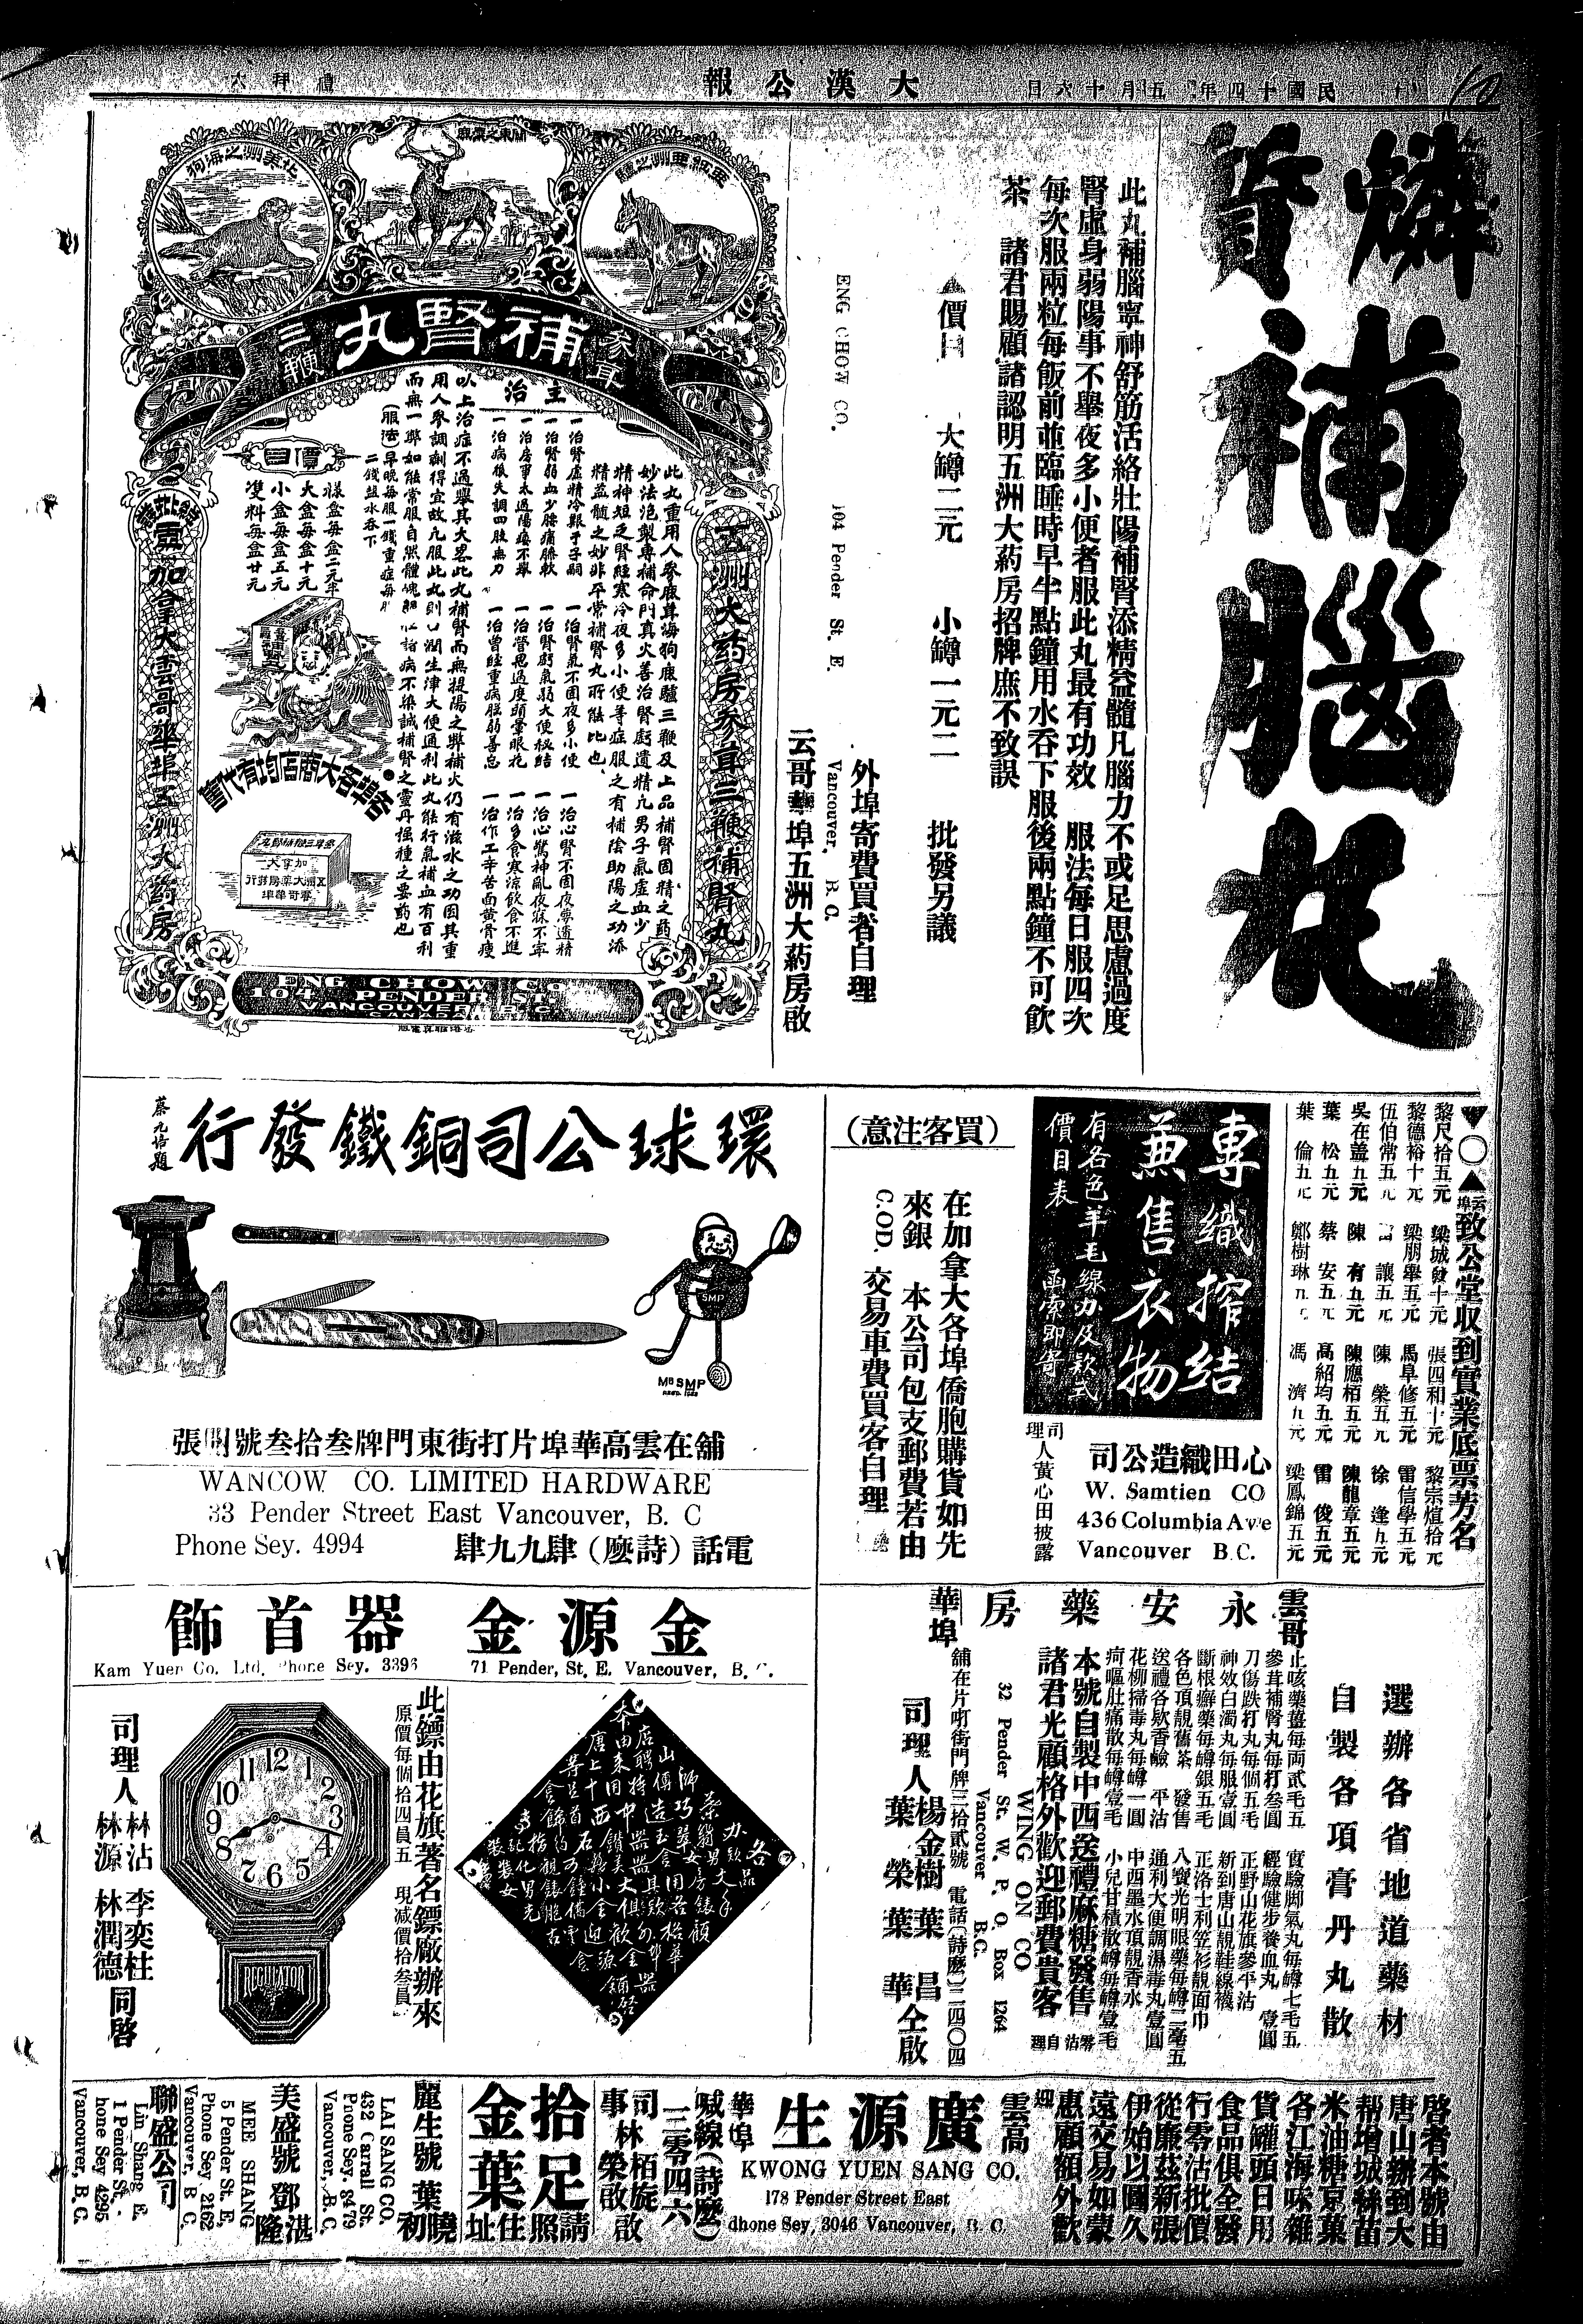 民國十四年 五月十六日
大漢公報
禮拜六
燐質補腦丸
此丸補腦寧神舒筋活絡壯陽補腎添精益髓凡腦力不或足思慮過度
腎虛身弱陽事不舉夜多小便者服此丸最有功效 服法每日服四次
每次服兩粒每飯前並臨睡時早半點鐘用水吞下服後兩點鐘不可飲
茶 諸君賜顧諸認明五洲大葯房招牌庶不致誤
▲價目 大罇二元 小罇一元二 批發另議
外埠寄費買者自理
ENG CHOW CO. 104 Pender St. E. Vancouver, B. C.
云哥華埠五洲大葯房啟
亞細亞洲之驢
關東之梅鹿
北美洲之海狗
參茸 補腎丸 三鞭
五洲大葯房參茸三鞭補腎丸
此丸重用人參鹿茸海狗鹿驢三鞭及上品補腎固精之葯
妙法泡製專補命門真火善治腎虧遺精凡男子氣虛血少
精神短乏腎經寒冷夜多小便等症服之有補陰助陽之功添
精益髓之妙非平常補腎丸所能比也
主治
一治腎虛精冷艱于子嗣 一治腎氣不固夜多小便 一治心腎不固夜夢遺精
一治腎弱血少腰痛膝軟 一治腎虧氣弱大便秘結 一治心驚神亂夜寐不寧
一治房事太過陽痿不舉 一治營思過度頭暈眼花 一治多食寒涼飲食不進
一治病後失調四肢無力 一治曾經重病脫弱善忘 一治作工辛苦面黃骨瘦
以上治症不過舉其大畧此丸補腎而無提陽之弊補火仍有滋水之功因其重
用人參調劑得宜故凡服此丸則口潤生津大便通利此丸能行氣補血有百利
而無一弊如能常服自然體魄細壯諸病不染誠補腎之靈丹强種之要葯也
(服法)早晚每服一錢重症每服
二錢鹽水吞下
價目
樣盒每盒二元半
大盒每盒十元
小盒每盒五元
雙料每盒廿元
各埠各大商店均有代售
加拿大
五洲大藥房發行
雲哥華埠
加拿大雲哥華埠五洲大葯房
ENG CHOW CO
104 PENDER ST.
VANCOUVER, B.C.
▼○▲云埠致公堂收到實業底票芳名
黎尺拾五元 梁城發十元 張四和十元 黎宗煊拾元
黎德裕十元 梁朋舉五元 馬阜修五元 雷信學五元
伍伯常五元 雷讓五元 陳榮五元 徐逢九元
吳在藎五元 陳有五元 陳應栢五元 陳龍章五元
葉松五元 蔡安五元 高紹均五元 雷俊五元
葉倫五元 鄭樹琳九元 馮濟九元 梁鳳錦五元
專織搾結
兼售衣物
有各色羊毛線力及款式
價目表 函索即寄
心田織造公司
W. Samtien CO
436 Columbia Ave
Vancouver B.C.
司理人黃心田披露
(買客注意)
在加拿大各埠僑胞購貨如先
來銀 本公司包支郵費若由
C.OD. 交易車費買客自理
環球公司銅鐵發行
蔡元培題
SMP
MR SMP
舖在雲高華埠片打街東門牌叁拾叁號開張
WANCOW CO. LIMITED HARDWARE
33 Pender Street East Vancouver, B. C
Phone Sey. 4994
電話(詩麼)肆九九肆
雲哥華埠 永安藥房
選辦各省地道藥材
自製各項膏丹丸散
止咳藥薑每両貳毛五
參茸補腎丸每打叁圓
刀傷跌打丸每個五毛
神效白濁丸每服壹圓
斷根癬藥每罇銀五毛
各色頂靚舊茶 發售
送禮各欵香鹼 平沽
花柳掃毒丸每罇一圓
疴嘔肚痛散每罇壹毛
實驗脚氣丸每罇七毛五
經驗健步養血丸 壹圓
正野山花旗參平沽
新到唐山靚鞋線襪
正洛士利笠衫靚面巾
八寶光明眼藥每罇二毫五
通利大便調濕毒丸壹圓
中西墨水頂靚香水
小兒甘積散每罇壹毛
本號自製中西送禮麻糖發售 零沽自理
諸君光顧格外歡迎郵費貴客
WING ON CO
32 Pender St. W. P. O. Box 1264
Vancouver B.C.
舖在片打街門牌三拾貳號 電話(詩麽)二四〇四
司理人 楊金樹 葉昌
葉榮 葉華 仝啟
金源金器首飾
Kam Yuen Co. Ltd. Phone Sey. 3396 71 Pender, St. E. Vancouver, B. C.
此鏢由花旗著名鏢廠辦來
原價每個拾四員五 現减價拾叁員
REGULATOR
司理人 林沾 李奕柱
林源 林潤德 同啓
啓者本號由
唐山辦到大
帮增城絲苗
米油糖京菓
各江海味雜
貨罐頭日用
食品俱全發
行零沽批價
從廉茲新張
伊始以圖久
遠交易如蒙
惠顧額外歡
迎
雲高華埠 廣源生
KWONG YUEN SANG CO.
178 Pender Street East
Phone Sey, 3046 Vancouver, B. C.
喊線(詩麼)
三零四六
司事 林栢旋
林榮 啟
拾足金葉
請照住址
麗生號 葉曉初
LAI SANG CO.
432 Carrall St.
Phone Sey. 8479
Vancouver, B. C.
美盛號 鄧湛隆
MEE SHANG
5 Pender St. E,
Phone Sey 2162
Vancouver, B C,
聯盛公司
Lin Shang E.
1 Pender St.
hone Sey 4295
Vancouver, B, C.